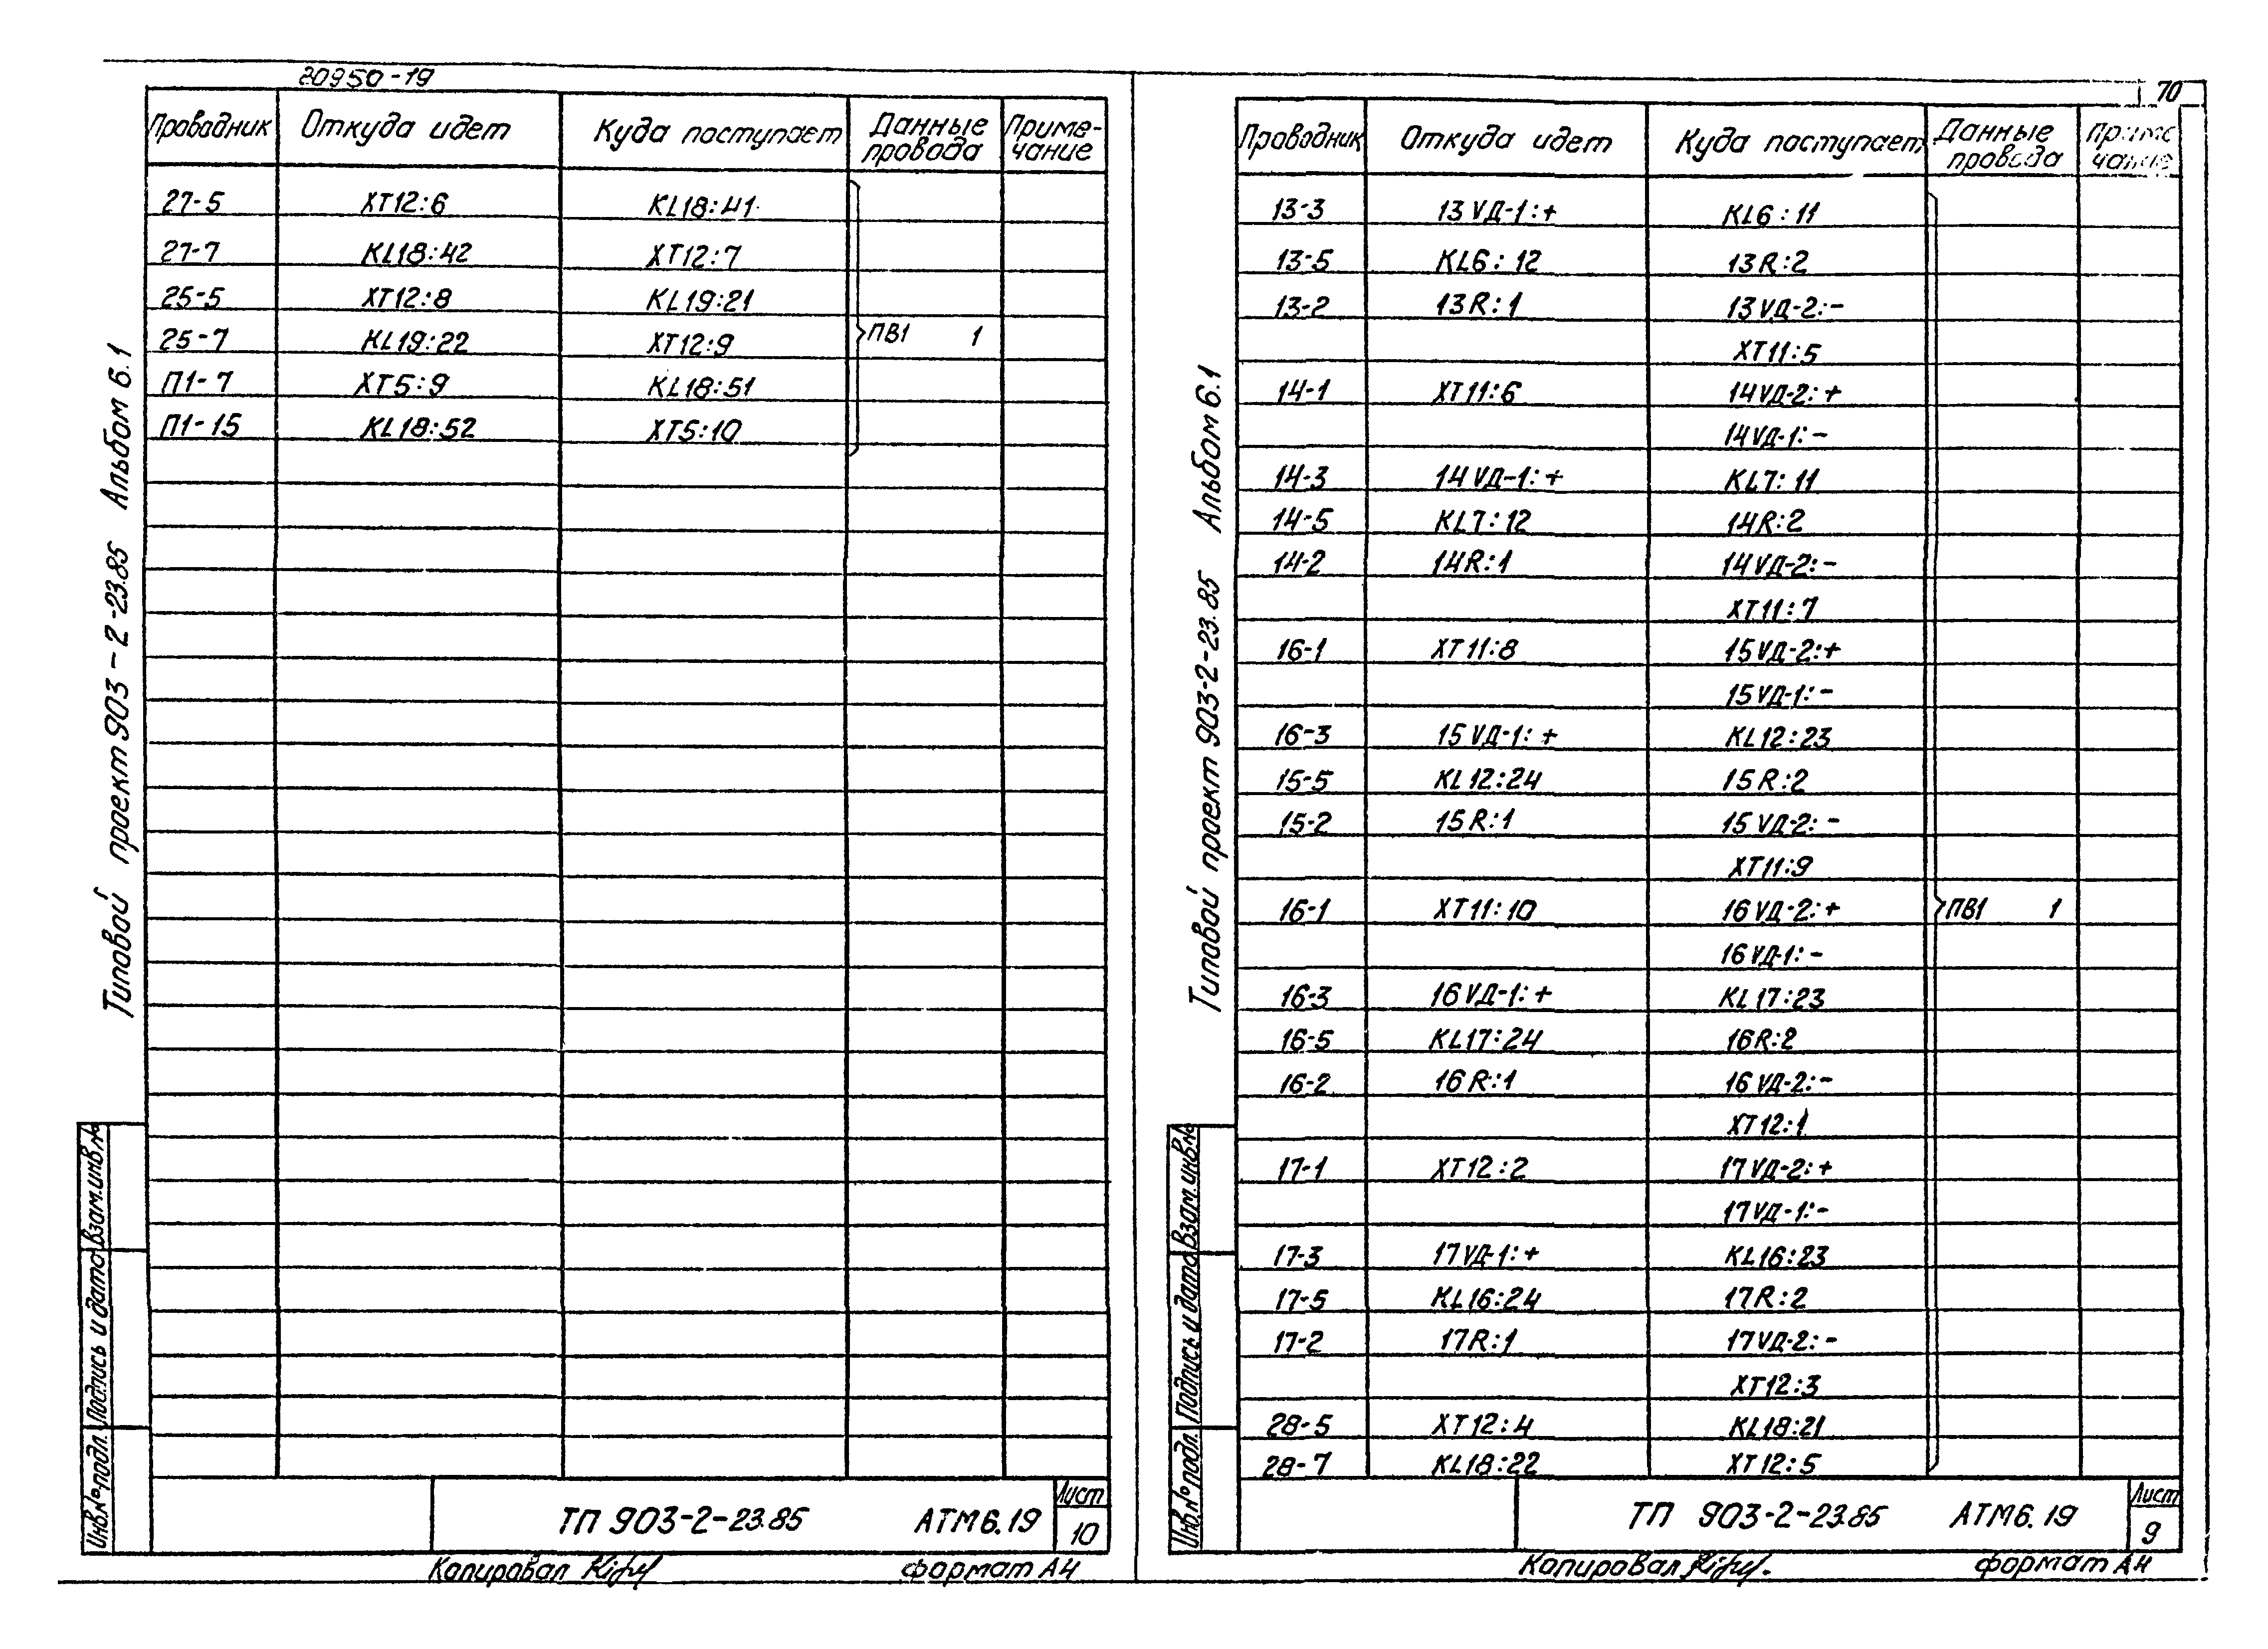 20950-19
70
Проводник Откуда идет Куда поступает Данные провода Приме-чание
27-5 ХТ12:6 KL18:41
27-7 KL18:42 ХТ12:7
25-5 ХТ12:8 KL19:21
25-7 KL19:22 ХТ12:9 ПВ1 1
П1-7 ХТ5:9 KL18:51
П1-15 KL18:52 ХТ5:10
Типовой проект 903-2-23.85 Альбом 6.1
Взам.инв.№
Подпись и дата
Инв.№подл.
ТП 903-2-23.85 АТМ6.19
Лист
10
Копировал
формат А4
Проводник Откуда идет Куда поступает Данные провода Приме чание
13-3 13VД-1:+ KL6:11
13-5 KL6:12 13R:2
13-2 13R:1 13VД-2:-
ХТ11:5
14-1 ХТ11:6 14VД-2:+
14VД-1:-
14-3 14VД-1:+ KL7:11
14-5 KL7:12 14R:2
14-2 14R:1 14VД-2:-
ХТ11:7
16-1 ХТ11:8 15VД-2:+
15VД-1:-
16-3 15VД-1:+ KL12:23
15-5 KL12:24 15R:2
15-2 15R:1 15VД-2:-
ХТ11:9
16-1 ХТ11:10 16VД-2:+ ПВ1 1
16VД-1:-
16-3 16VД-1:+ KL17:23
16-5 KL17:24 16R:2
16-2 16R:1 16VД-2:-
ХТ12:1
17-1 ХТ12:2 17VД-2:+
17VД-1:-
17-3 17VД-1:+ KL16:23
17-5 KL16:24 17R:2
17-2 17R:1 17VД-2:-
ХТ12:3
28-5 ХТ12:4 KL18:21
28-7 KL18:22 ХТ12:5
Типовой проект 903-2-23.85 Альбом 6.1
Взам.инв.№
Подпись и дата
Инв.№подл.
ТП 903-2-23.85 АТМ6.19
Лист
9
Копировал
формат А4